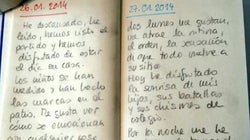 26.01.2014
He descansado, he
leído, hemos visto el
partido y hemos
disfrutado de estar
el día en casa.
Los niños se han
medido y han hecho
las marcas en el
palo. Da gusto ver
cómo se emocionan
27.01.2014
Los lunes me gustan,
me atrae la rutina,
el orden, la sensación
de que todo vuelve a
su sitio.
Hoy he disfrutado
la sonrisa de mis
hijos, sus batallas
y sus chismes de
colegio.
Por la noche me he